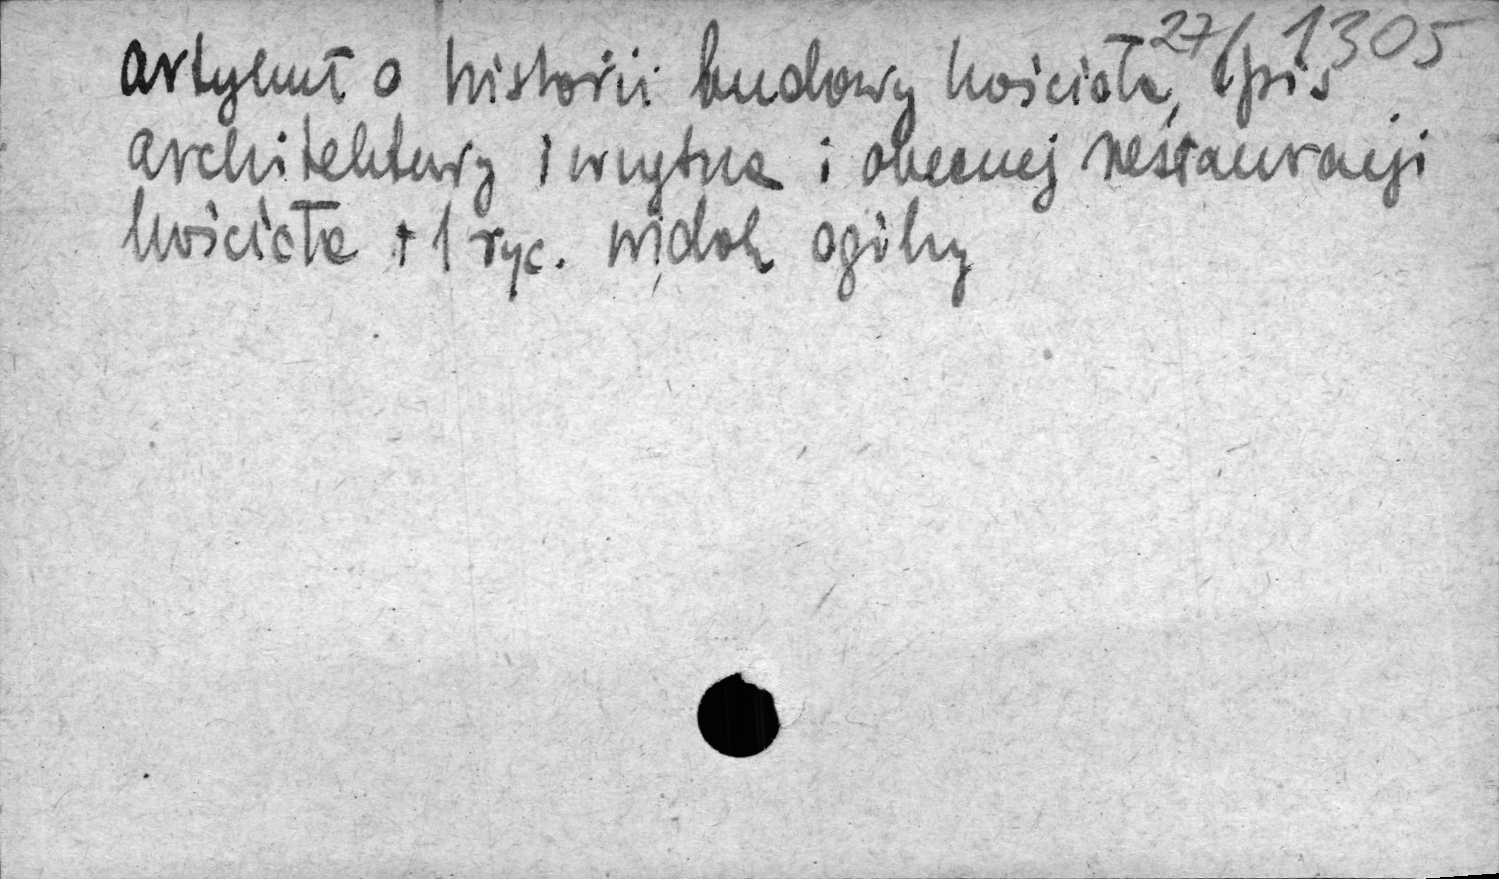 27/1305
artykuł o historii budowy kościoła, opis
architektury i wnętrza i obecnej restauracji
kościoła + 1 ryc. widok ogólny